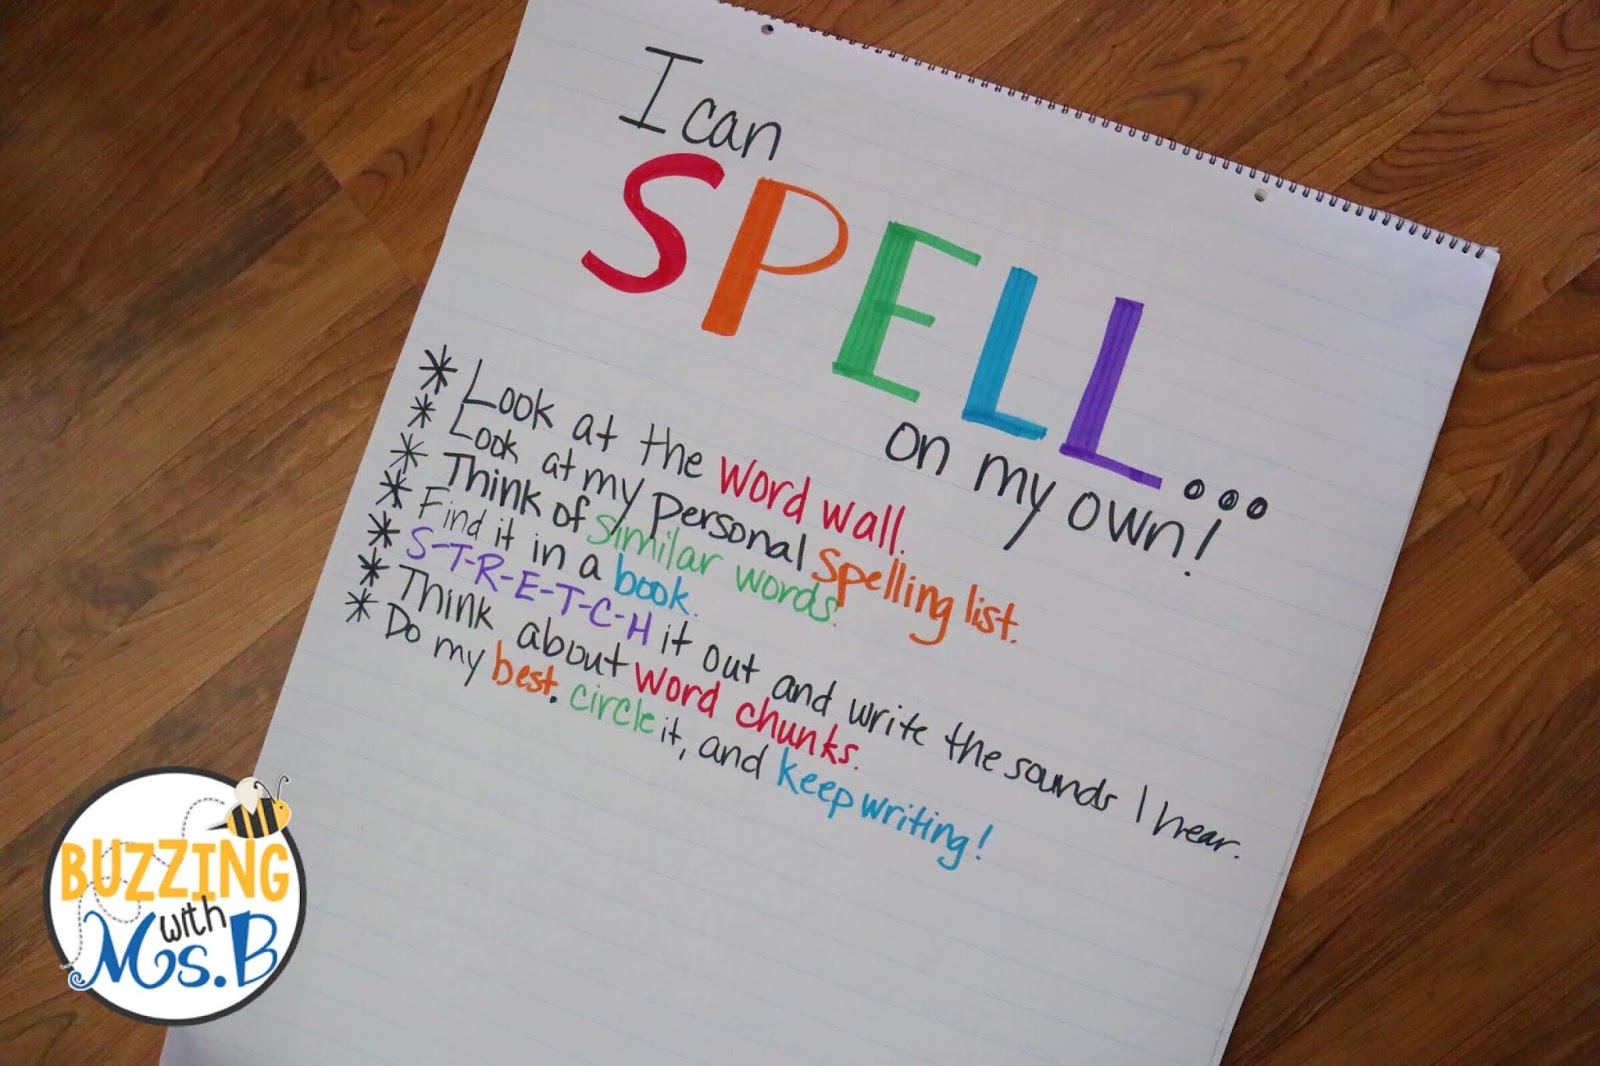 I can
SPELL...
on my own!
* Look at the word wall.
* Look at my personal spelling list.
* Think of similar words.
* Find it in a book.
* S-T-R-E-T-C-H it out and write the sounds I hear.
* Think about word chunks.
* Do my best. circle it, and keep writing!
BUZZING
with
Ms. B